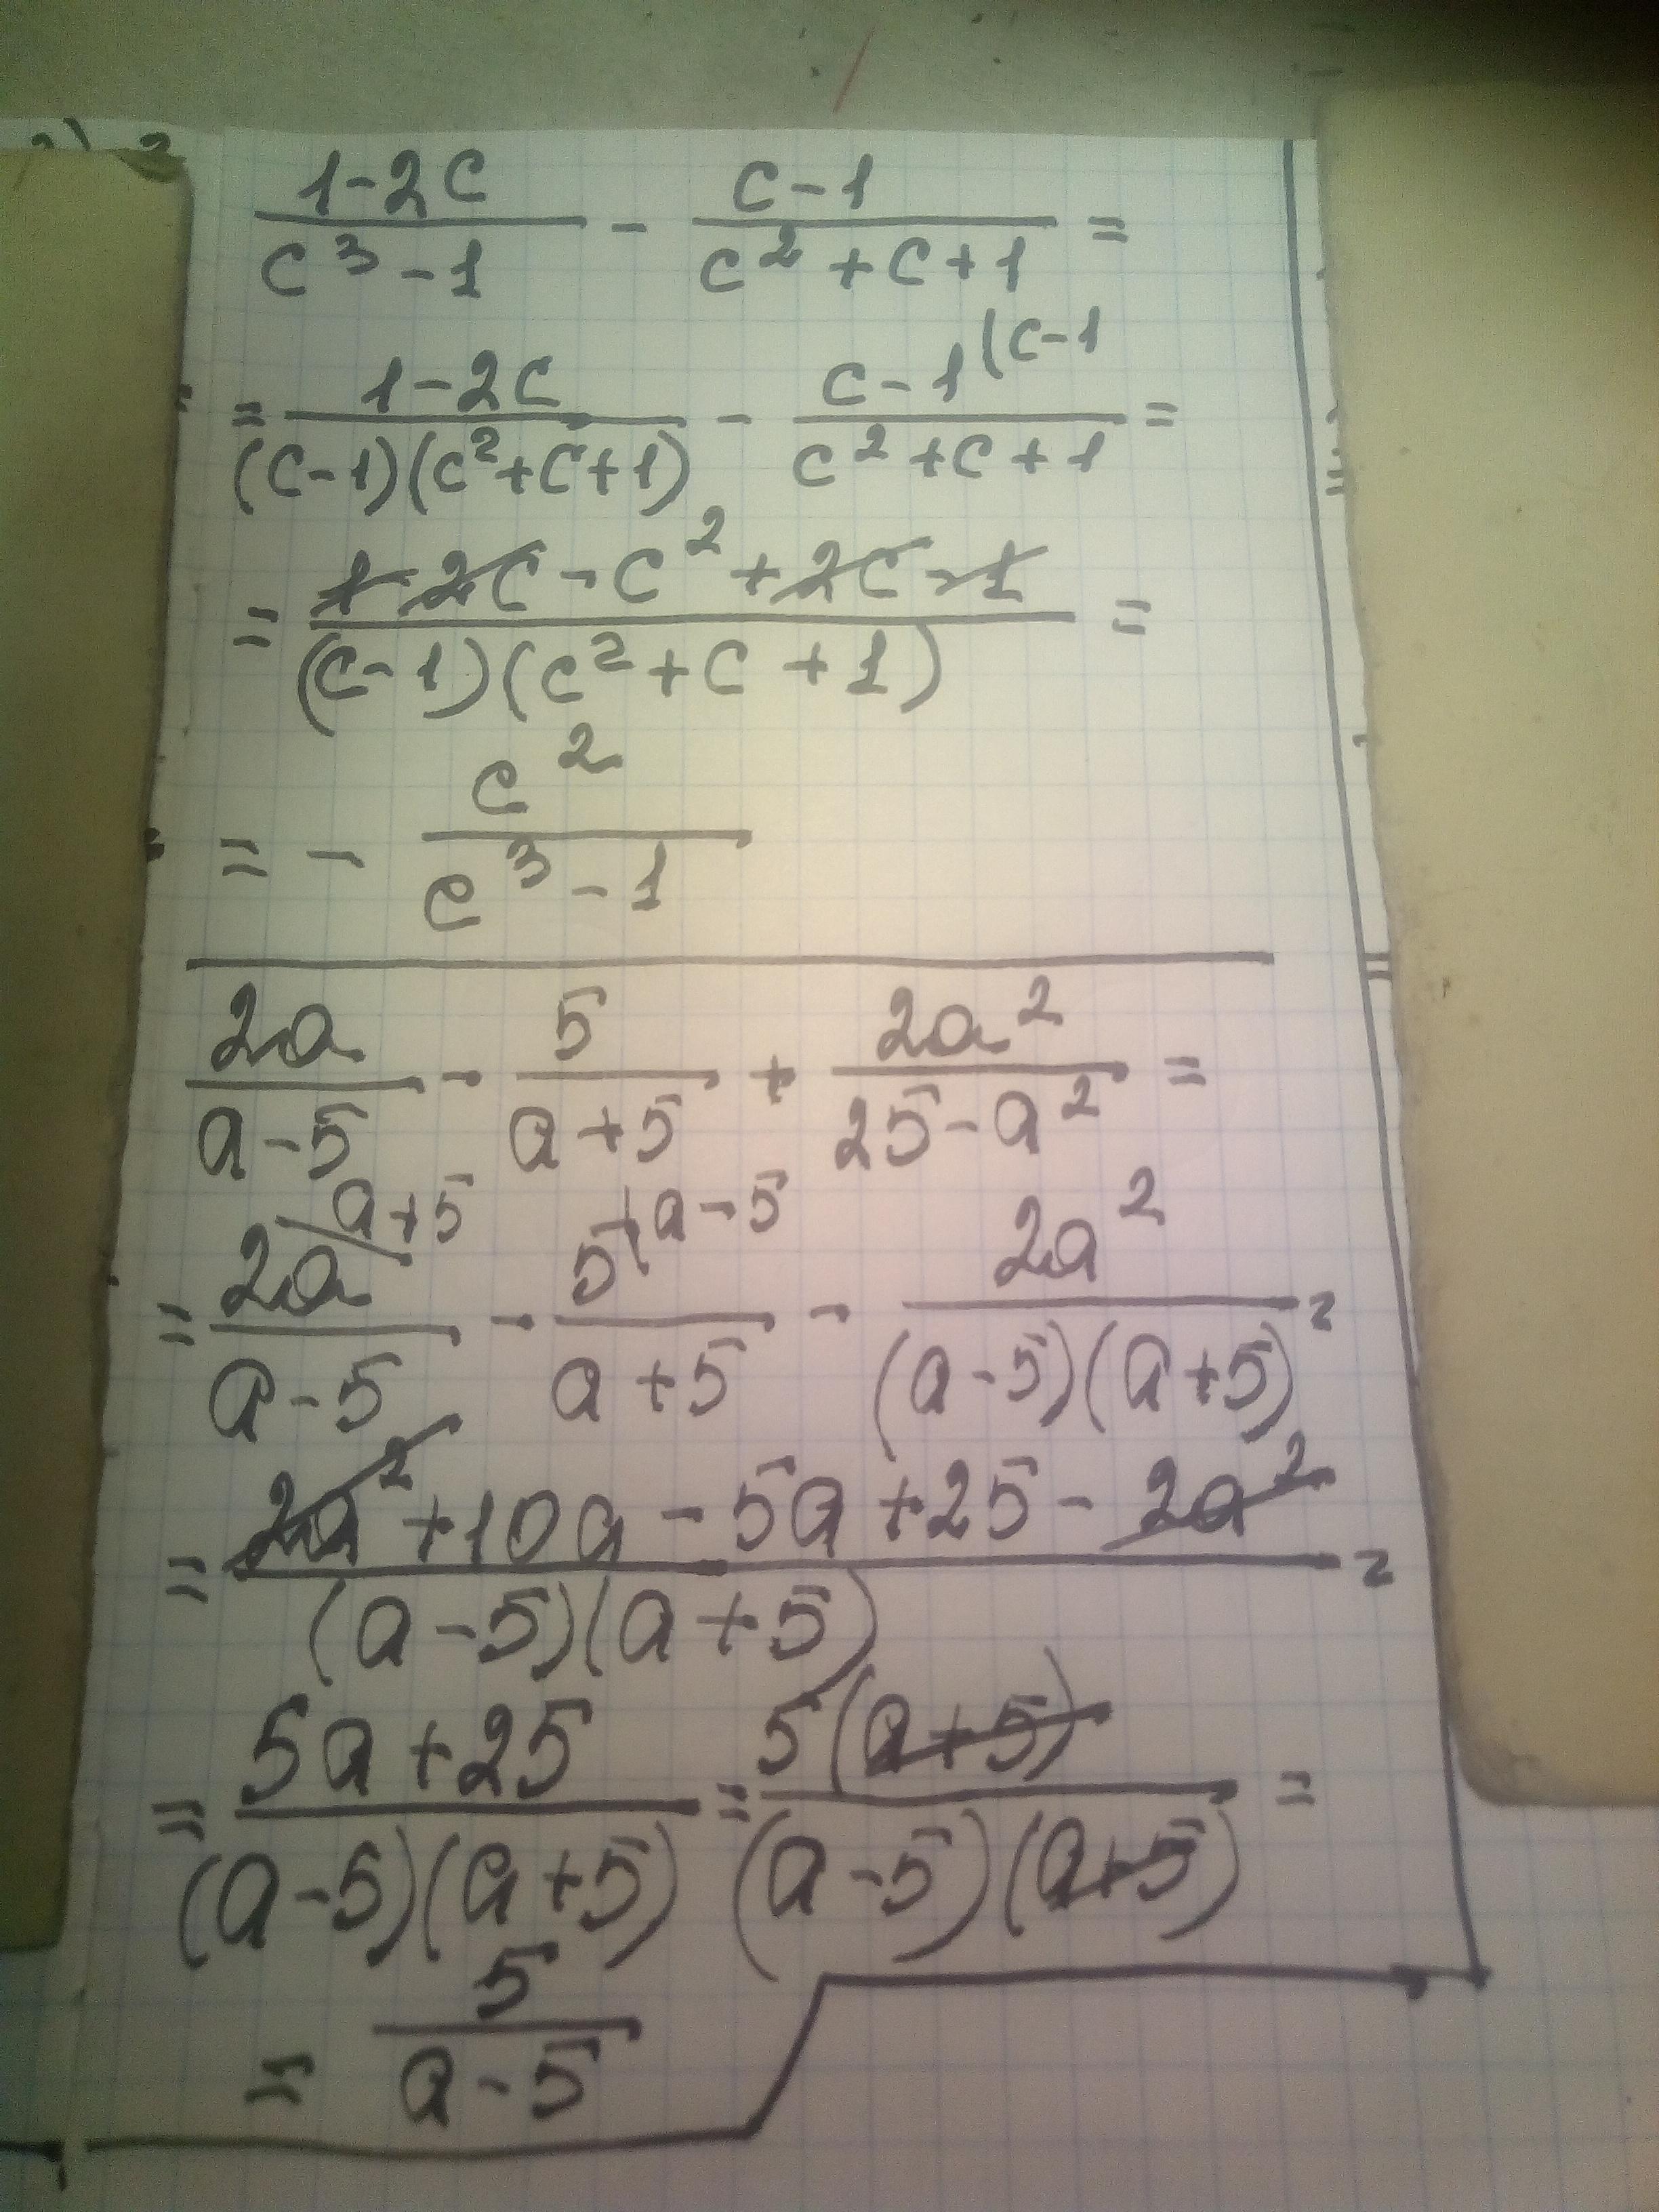 (1-2c)/(c³-1) - (c-1)/(c²+c+1) =
= (1-2c)/((c-1)(c²+c+1)) - (c-1^(c-1)/(c²+c+1) =
= (1-2c-c²+2c-1)/((c-1)(c²+c+1)) =
= - c²/(c³-1)
2a/(a-5) - 5/(a+5) + 2a²/(25-a²) =
= 2a^(a+5)/(a-5) - 5^(a-5)/(a+5) - 2a²/((a-5)(a+5)) =
= (2a²+10a-5a+25-2a²)/((a-5)(a+5)) =
= (5a+25)/((a-5)(a+5)) = 5(a+5)/((a-5)(a+5)) =
= 5/(a-5)